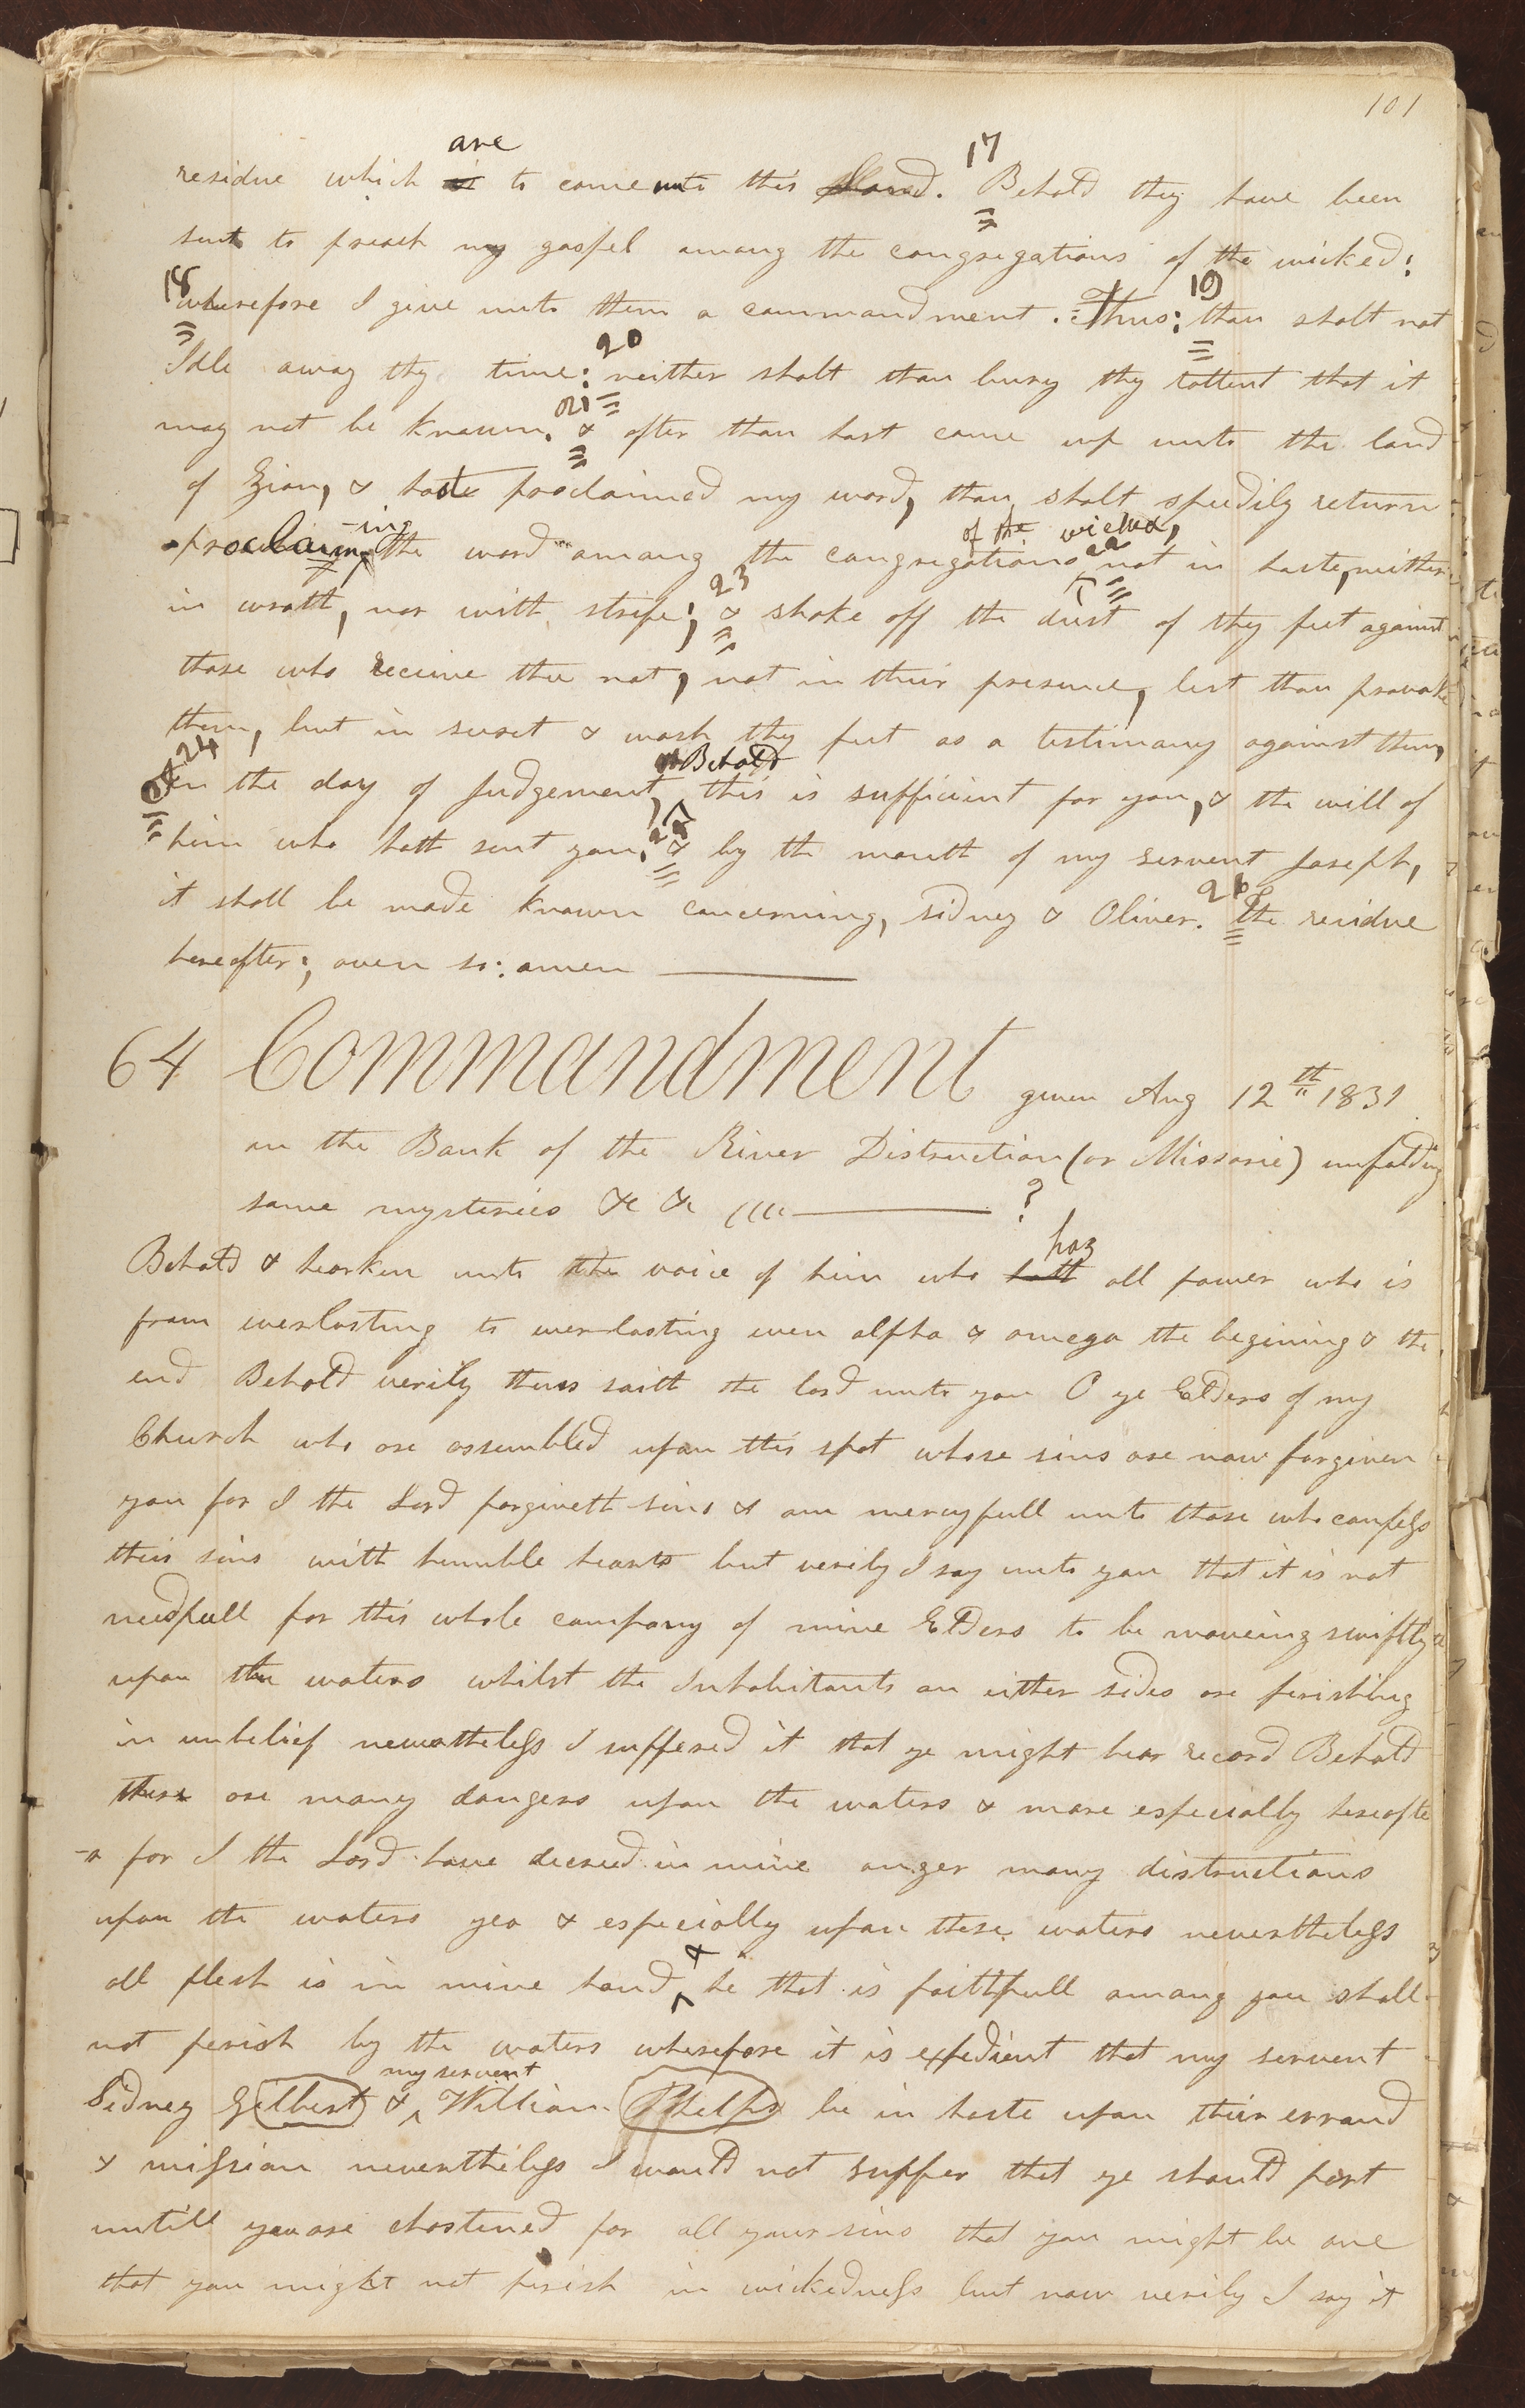 101
are
residue which is to come unto this Land. 17 Behold they have been
sent to preach my gospel among the congregations of the wicked:
18 wherefore I give unto them a commandment. Thus: 19 thou shalt not
Idle away thy time: 20 neither shalt thou bury thy tallent that it
may not be known. 21 & after thou hast come up unto the land
of Zion, & hast proclaimed my word, thou shalt speedily return
-ing of the wicked,
proclaim the word among the congregations 22 not in haste, neither
in wrath, nor with strife; 23 & shake off the dust of thy feet against
those who receive thee not, not in their presence, lest thou provoke
them, but in secret & wash thy feet as a testimony against them,
24 Behold
in the day of Judgement, this is sufficient for you, & the will of
him who hath sent you. 25 & by the mouth of my servent Joseph,
it shall be made known concerning, sidney & Oliver. 26 the residue
hereafter:, even so: amen
64 Commandment given Aug 12th 1831
on the Bank of the River Distruction (or Missorie) unfolding
some mysteries &c &c ?
haz
Behold & hearken unto the voice of him who hath all power who is
from everlasting to everlasting even alpha & omega the begining & the
end Behold verily thus saith the lord unto you O ye Elders of my
Church who are assembled upon this spot whose sins are now forgiven
you for I the Lord forgiveth sins & am mercyfull unto those who confess
their sins with humble hearts but verily I say unto you that it is not
needfull for this whole company of mine Elders to be moveing swiftly
upon the waters whilst the Inhabitants on either sides are perishing
in unbelief nevertheless I suffered it that ye might bear record Behold
there are many dangers upon the waters & more especially hereafte
-r for I the Lord have decreed in mine anger many distructions
upon the waters yea & especially upon these waters nevertheless
&
all flesh is in mine hand ^ he that is faithfull among you shall
not perish by the waters wherefore it is expedient that my servent
my servent
Sidney Gilbert & ^ William Phelps be in haste upon their errand
& mission nevertheless I would not suffer that ye should part
untill you are chastened for all your sins that you might be one
that you might not perish in wickedness but now verily I say it